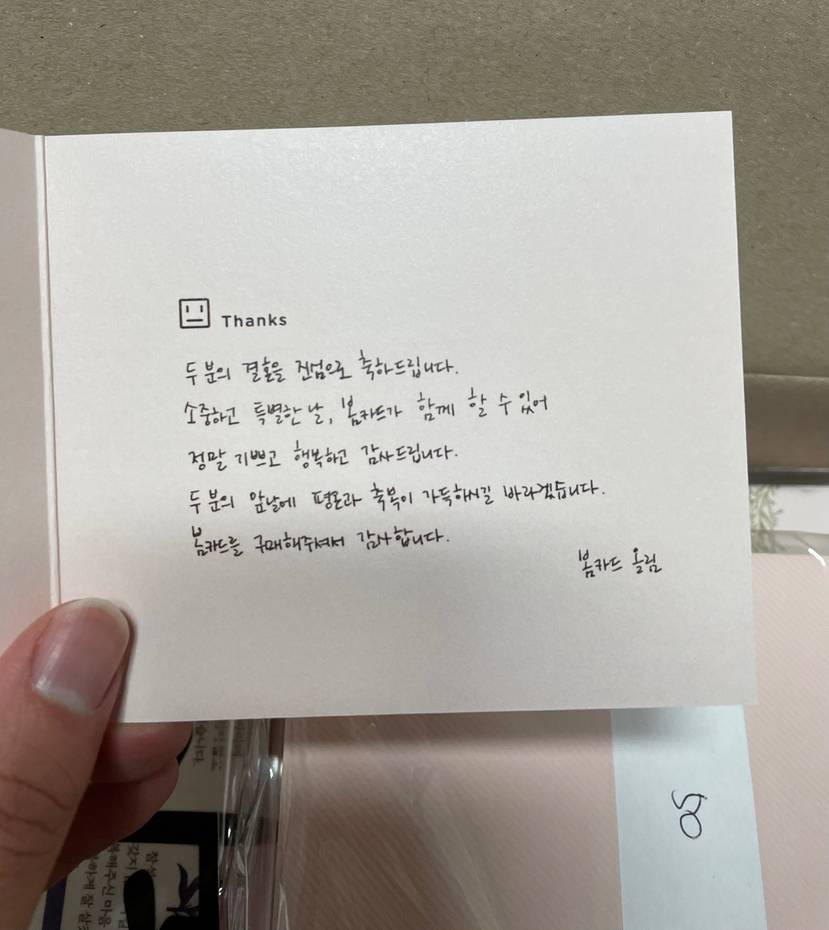 Thanks
두 분의 결혼을 진심으로 축하드립니다.
소중하고 특별한 날, 봄카드가 함께 할 수 있어
정말 기쁘고 행복하고 감사드립니다.
두 분의 앞날에 평온과 축복이 가득하시길 바라겠습니다.
봄카드를 구매해주셔서 감사합니다.
봄카드 올림
50